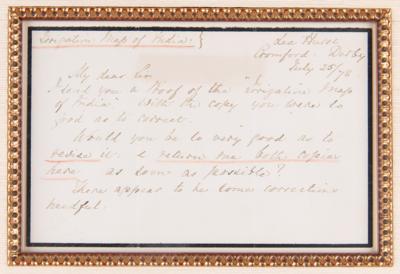 Irrigation Map of India: }
Lea Hurst
Cromford: Derby
July 25/78
My dear Sir
I send you a Proof of the "Irrigation Map
of India" with the copy you were so
good as to correct.
Would you be so very good as to
revise it. & return me both copies
here as soon as possible?
There appear to be some corrections
needful.